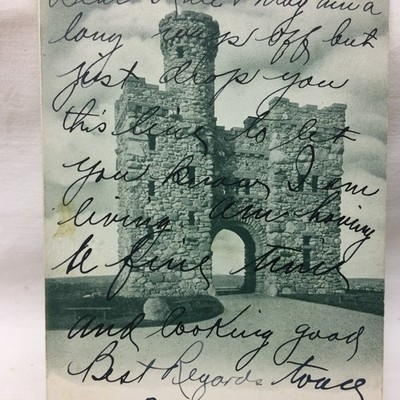 Dear I am a
long ways off but
just drop you
this line to let
you know I am
living. am having
a fine time
and looking good
Best Regards to all